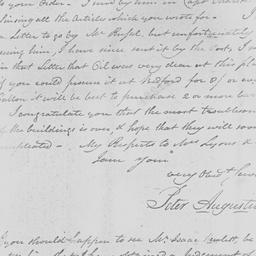 your Order.
ining all the Articles which you wrote for.
a Letter to go by Mr. but unfortunately
ing him, I have since sent it by the Post, I
in that Letter that Oil was very dear at this pla
if you could procure it at Bedford for 8/ or
Gallon it will be best to purchase 2 or more
I congratulate you that the most troublesom
of the buildings is over & hope that they will soon
mpleated. My Respects to Mrs Lyons &
I am your
very Obed. Serv
Peter Augustu
If you should happen to see Mr. Isaac be
obtained a Judgement